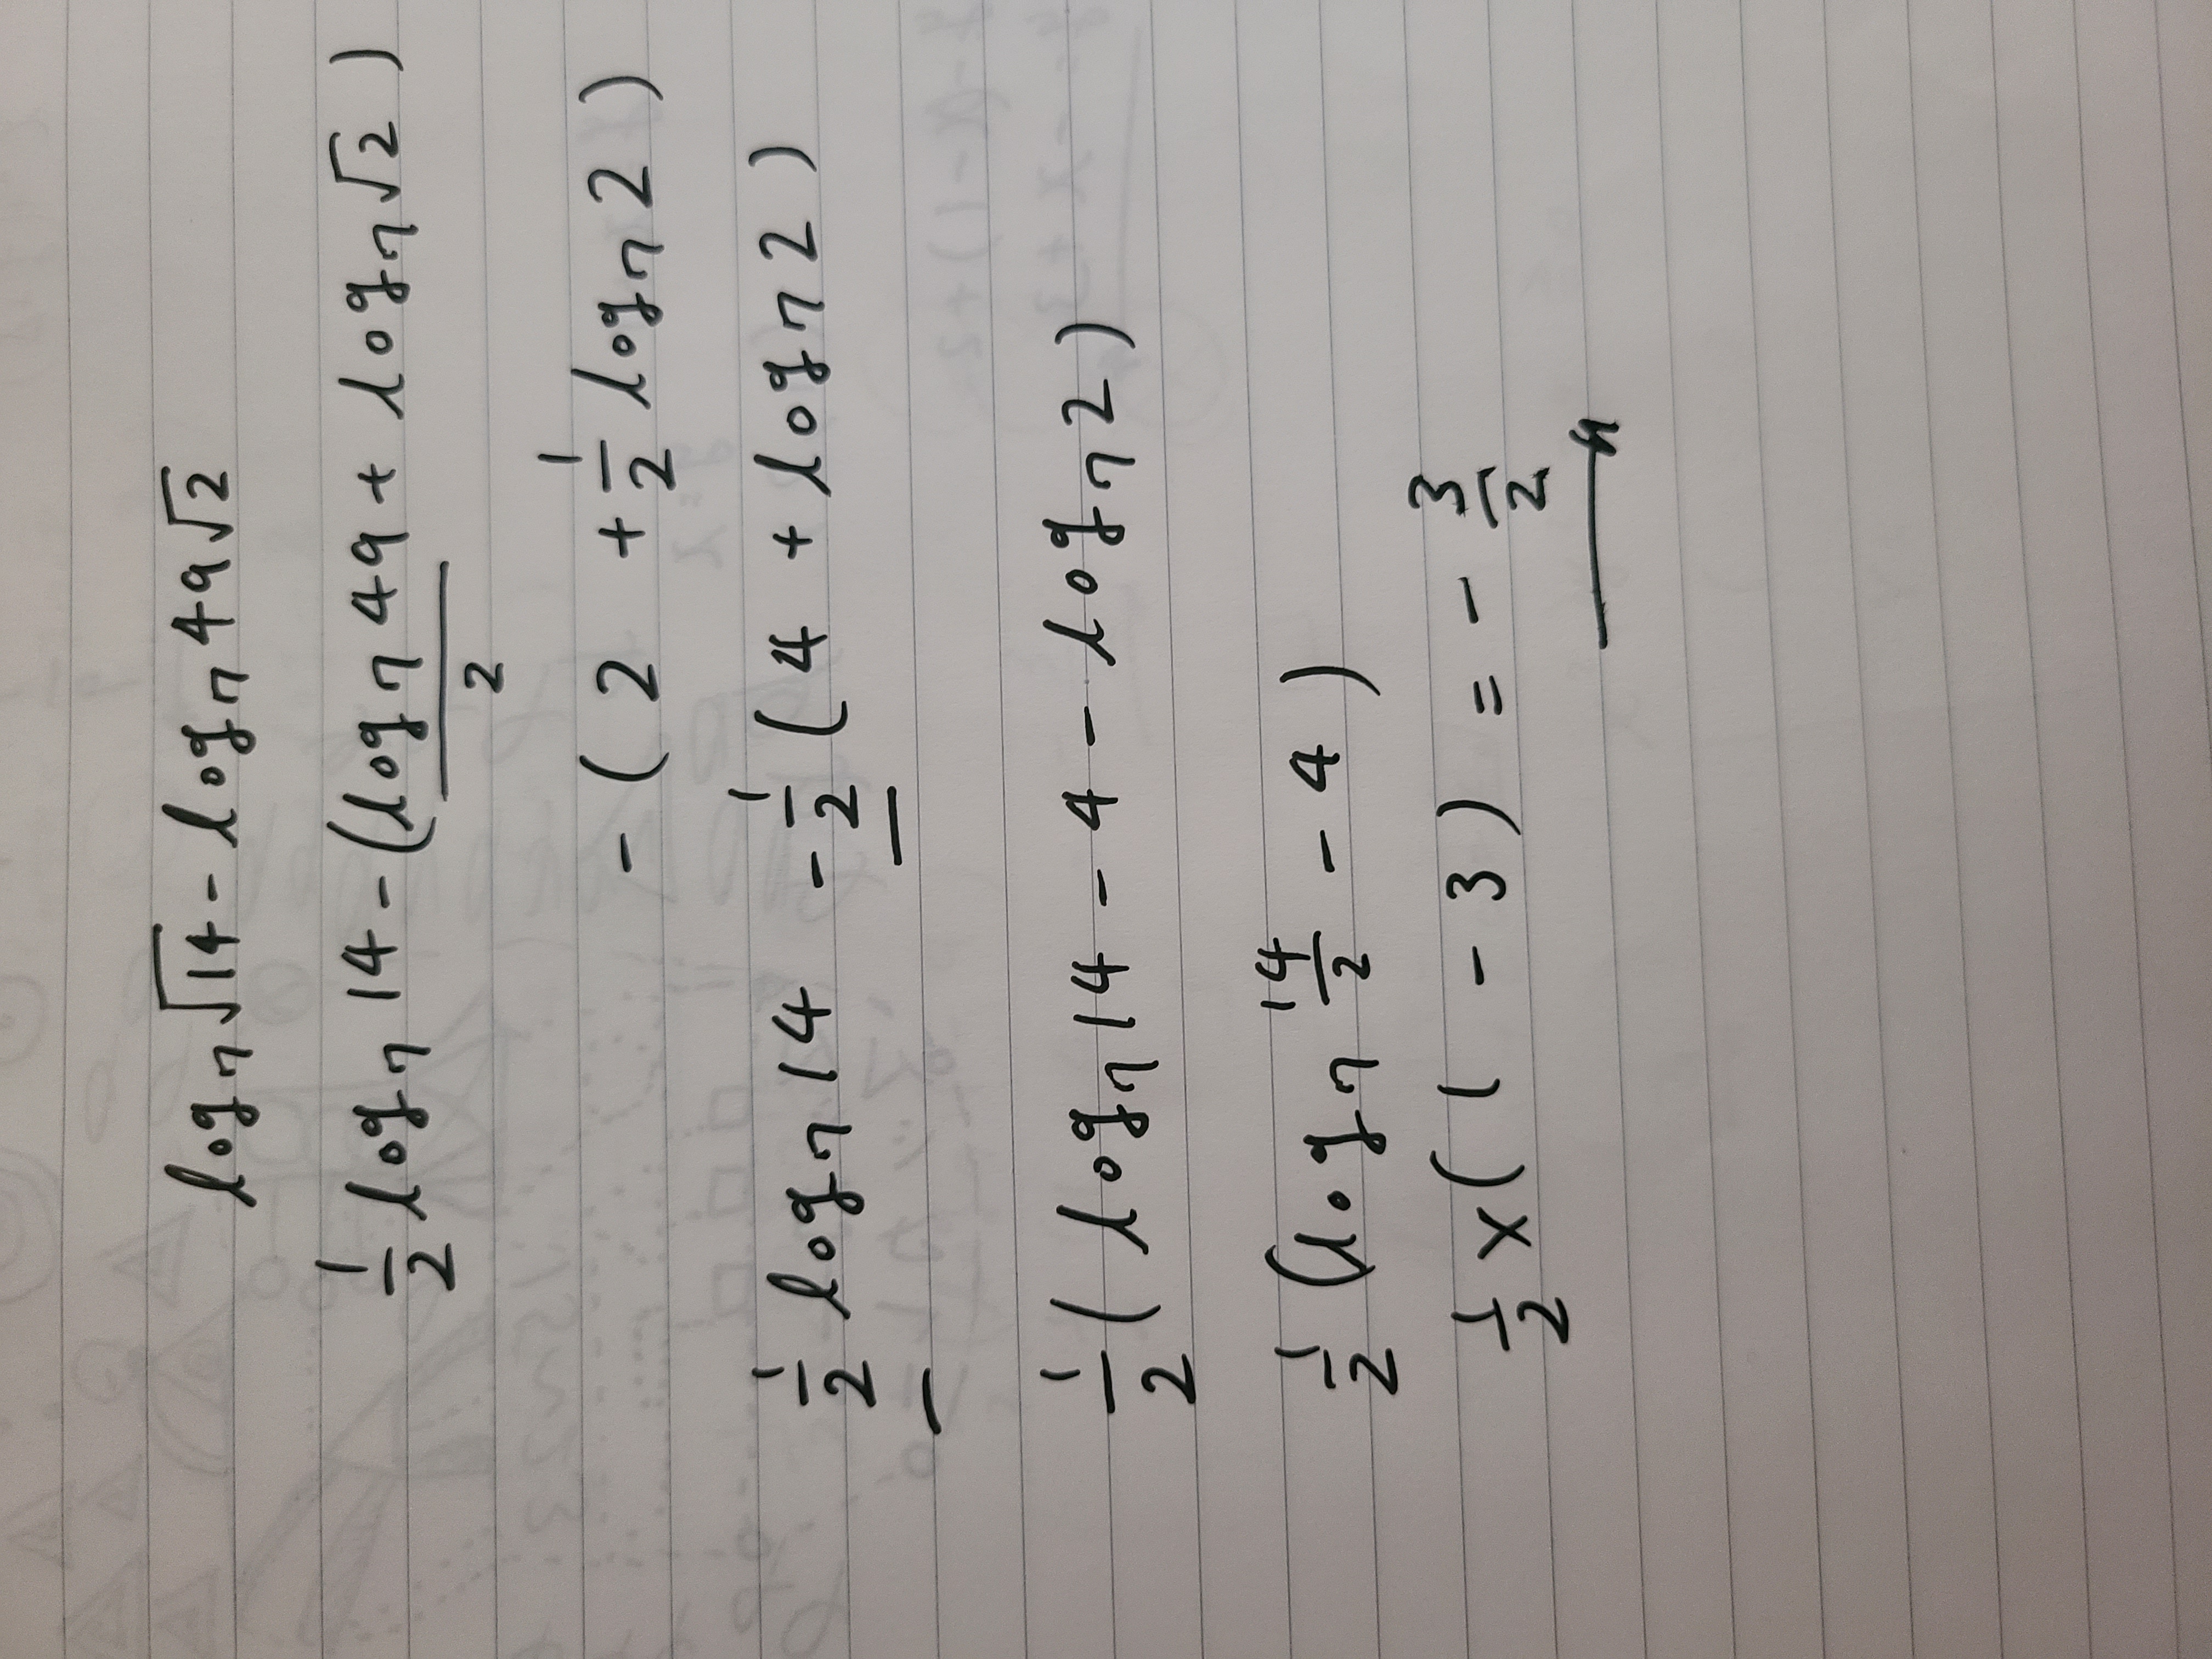 log₇√14 - log₇49√2
1/2 log₇14 - (log₇49 + log₇√2)
2
- (2 + 1/2 log₇2)
1/2 log₇14 - 1/2 (4 + log₇2)
1/2 (log₇14 - 4 - log₇2)
1/2 (log₇ 14/2 - 4)
1/2 × (1 - 3) = - 3/2